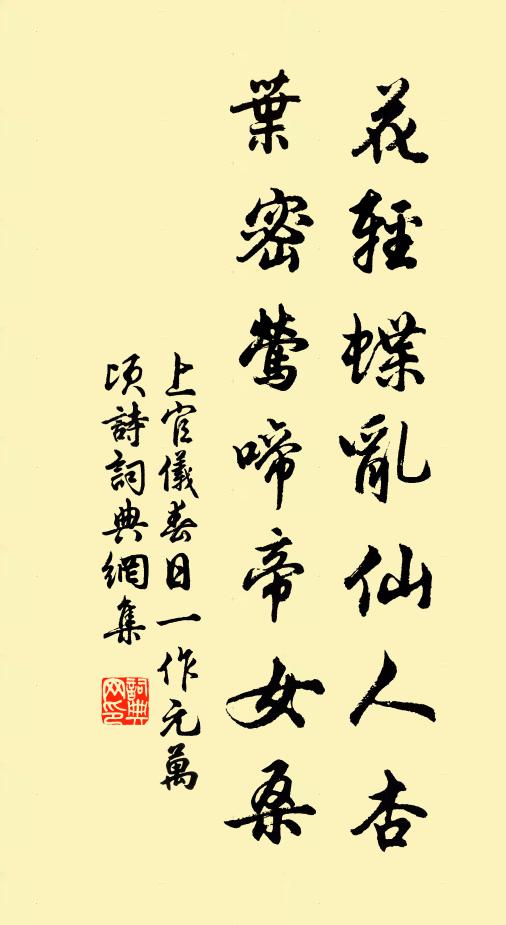 花輕蝶亂仙人杏
葉密鶯啼帝女桑
上官儀春日一作元萬
頃詩詞典網集
詞典網印